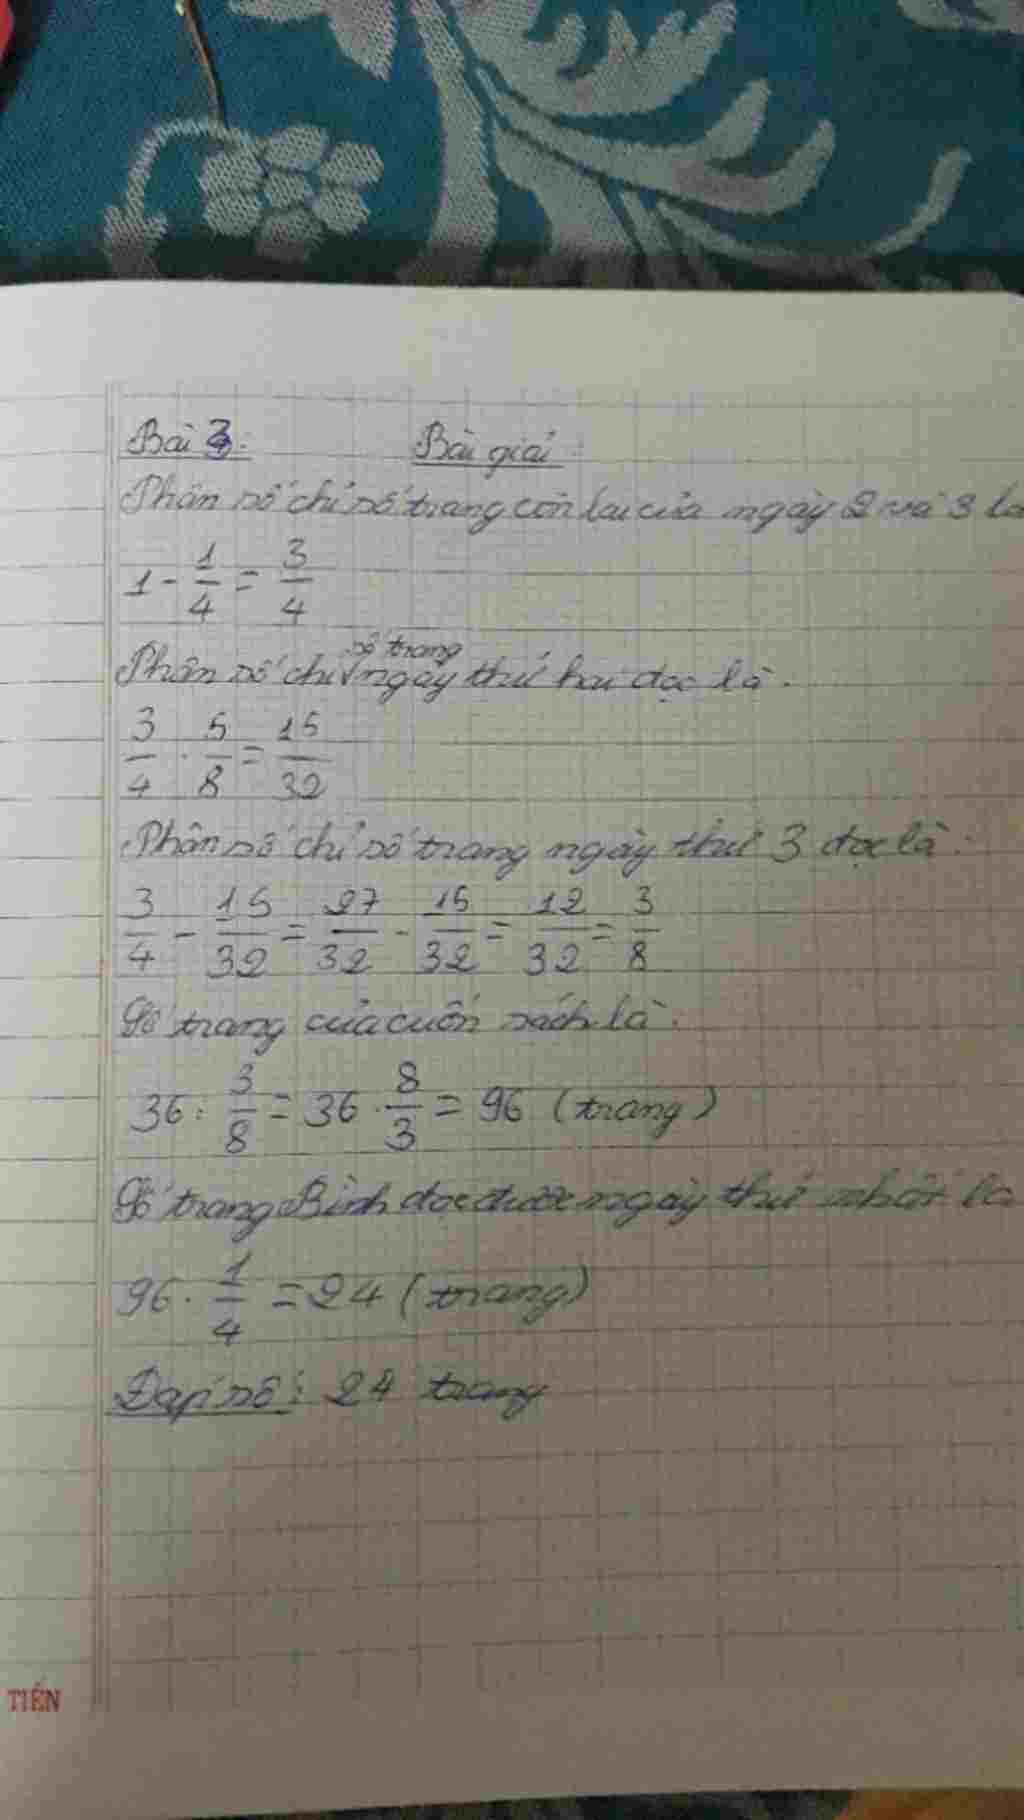 Bài 3: Bài giải:
Phân số chỉ số trang còn lại của ngày 2 và 3 là
1 - 1/4 = 3/4
Phân số chỉ số trang ngày thứ hai đọc là.
3/4 . 5/8 = 15/32
Phân số chỉ số trang ngày thứ 3 đọc là:
3/4 - 15/32 = 27/32 - 15/32 = 12/32 = 3/8
Số trang của cuốn sách là:
36 : 3/8 = 36 . 8/3 = 96 (trang)
Số trang Bình đọc được ngày thứ nhất là
96 . 1/4 = 24 (trang)
Đáp số: 24 trang
TIẾN